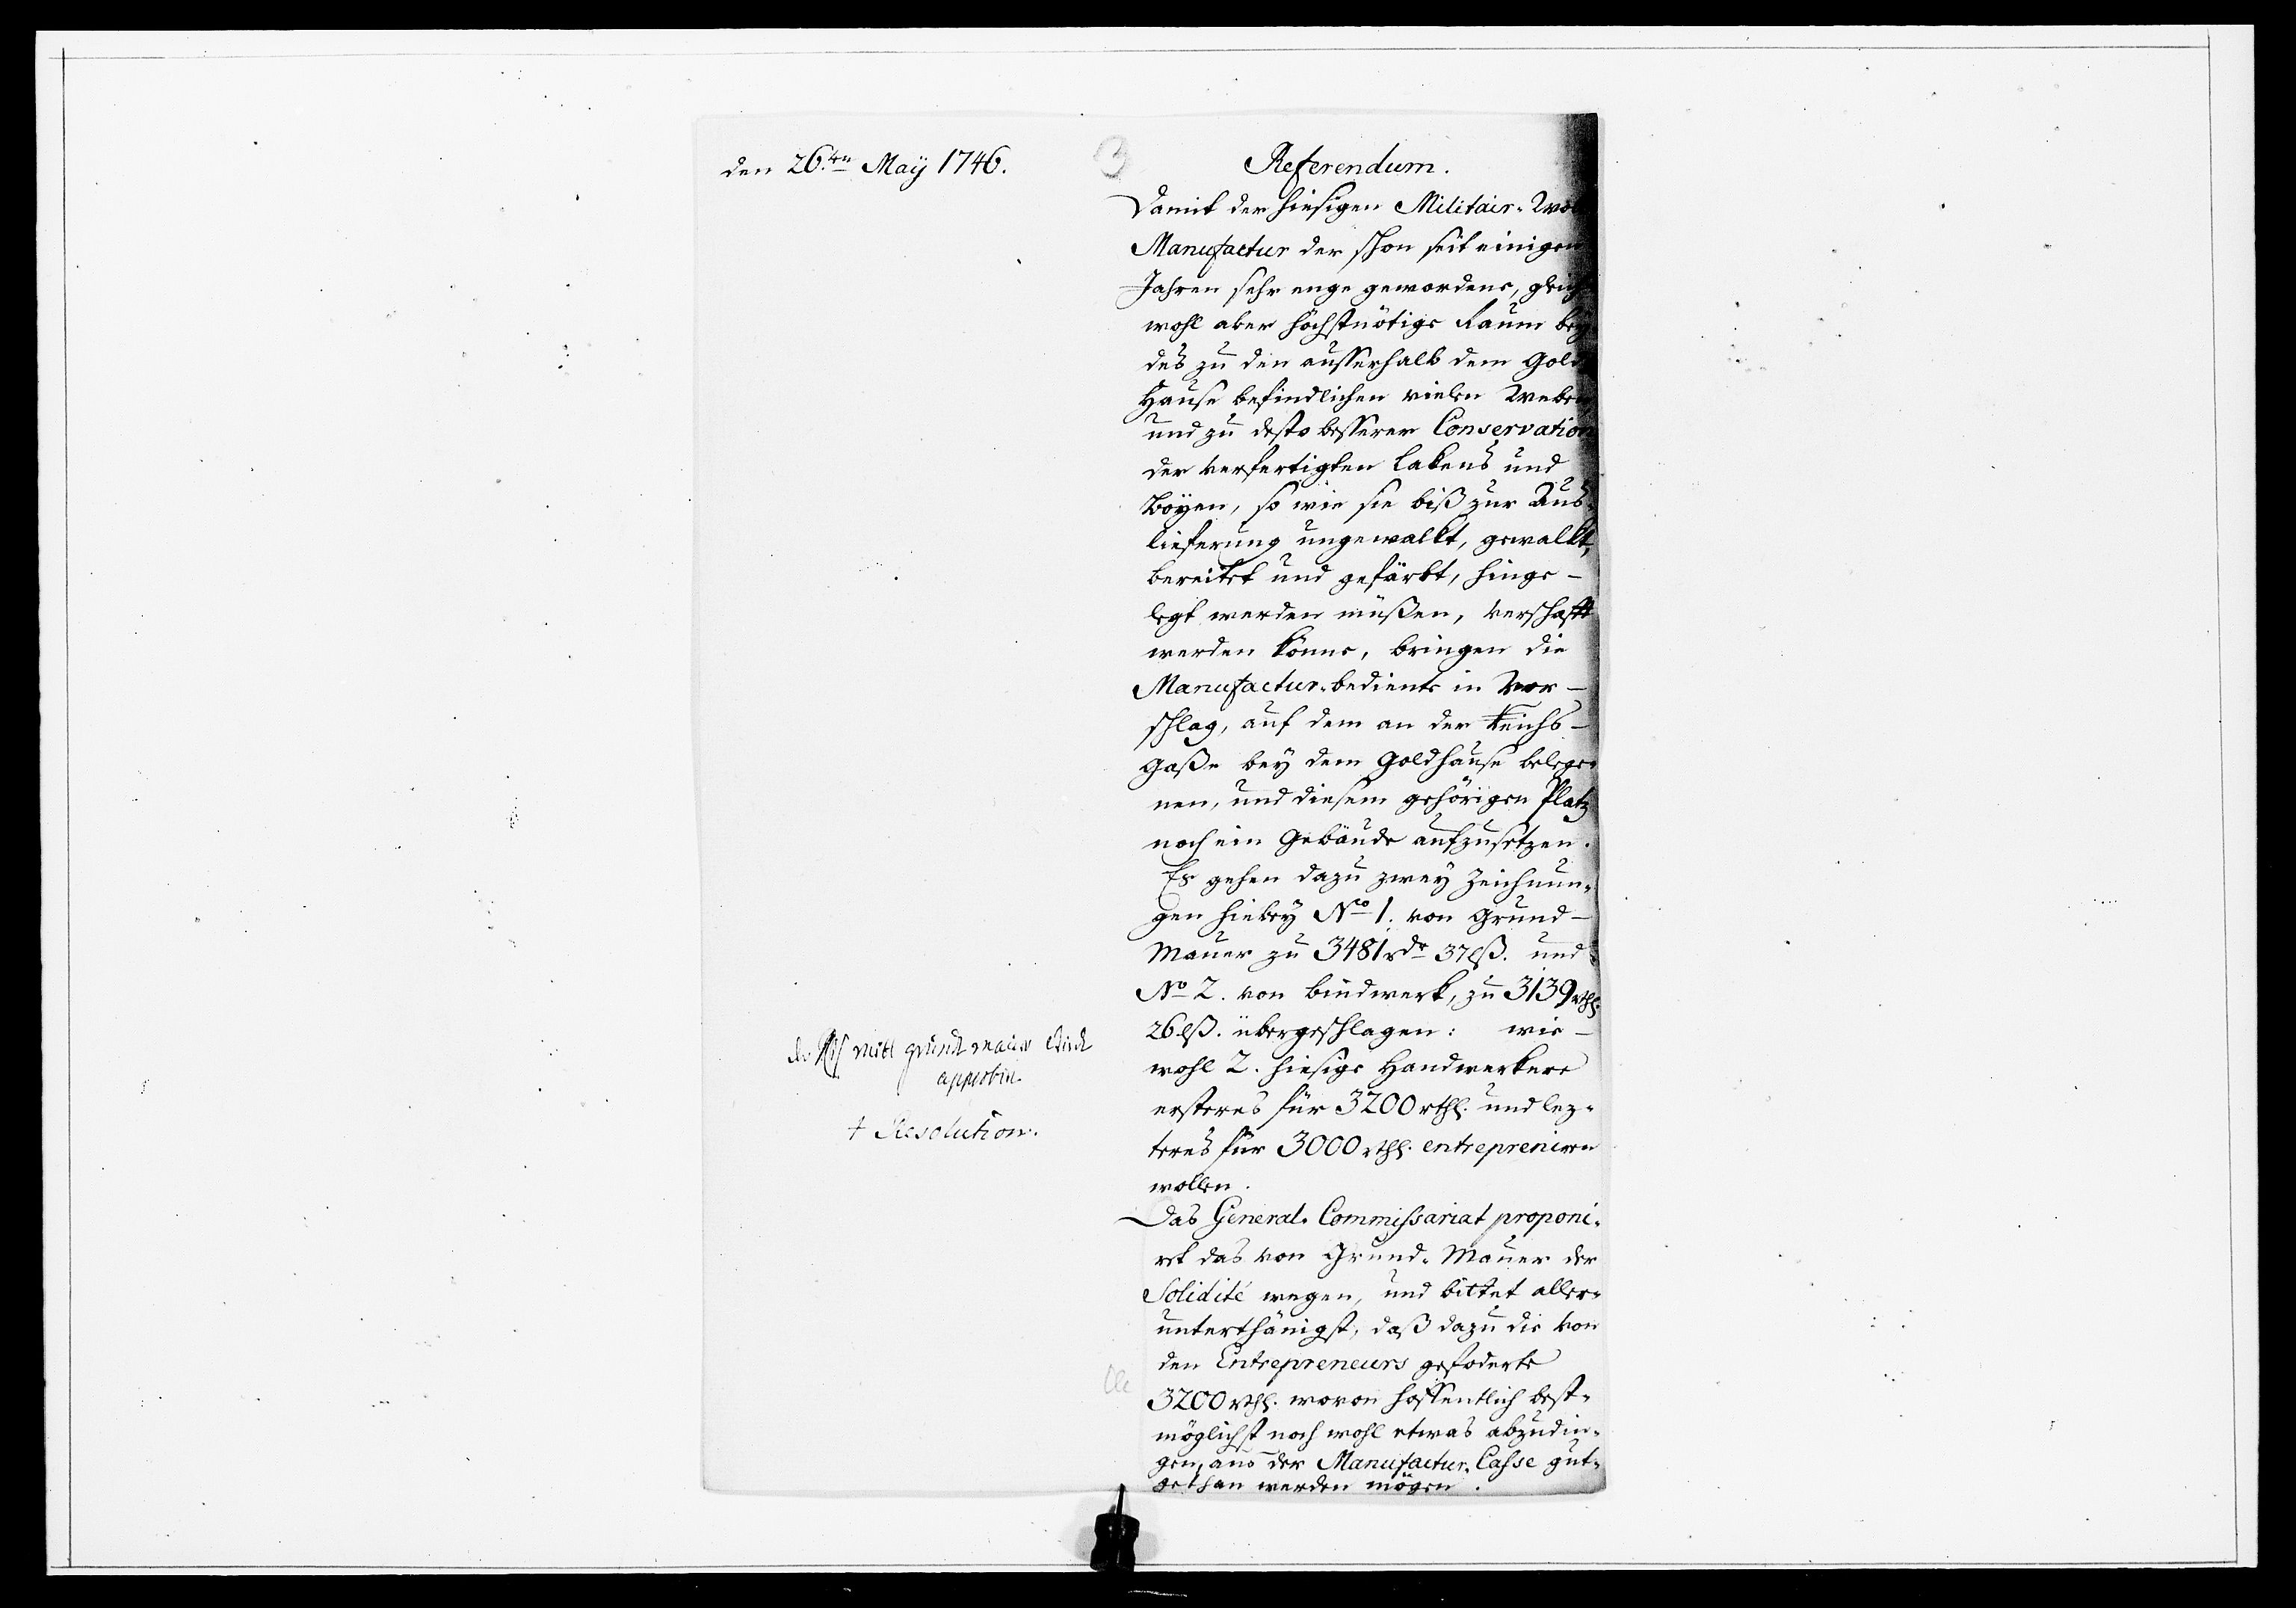 den 26.ten Maÿ 1746.
3
Referendum.
Damit der hiesigen Militair-
Manufactur der schon seit einigen
Jahren sehr enge gewordene, gleich
wohl aber höchstnötige Raum bey
des zu den ausserhalb dem Gold
Hause befindlichen vielen Webern
und zu desto besserer Conservation
der verfertigten Lakens und
Boyen, so wie sie biß zur Aus-
lieferung ungewalkt, gewalkt,
bereitet und gefärbt, hinge-
legt werden müßen, verschafft
werden könne, bringen die
Manufactur-bediente in Vor-
schlag, auf dem an der Teichs-
Gaße bey dem Goldhause belege-
nen, und diesem gehörigen Platz
noch ein Gebäude aufzusetzen.
Es gehen dazu zwey Zeichnun-
gen hiebey No 1. von Grund-
Mauer zu 3481 rdr 37 lß. und
No 2. von Bindwerk, zu 3139 rthl.
26 lß. übergeschlagen: wie-
wohl 2. hiesige Handwerkere
ersteres für 3200 rthl. und lez-
teres für 3000 rthl. entrepreniren
wollen.
Das General-Commissariat proponi-
ret das von Grund-Mauer der
Solidité wegen, und bittet aller-
unterthänigst, daß dazu die von
den Entrepreneurs gefoderte
3200 rthl. wovon hoffentlich best-
möglichst noch wohl etwas abzudin-
gen, aus der Manufactur-Casse gut-
gethan werden mögen.
mitt grund mauer wird
approbir.
+ Resolution.